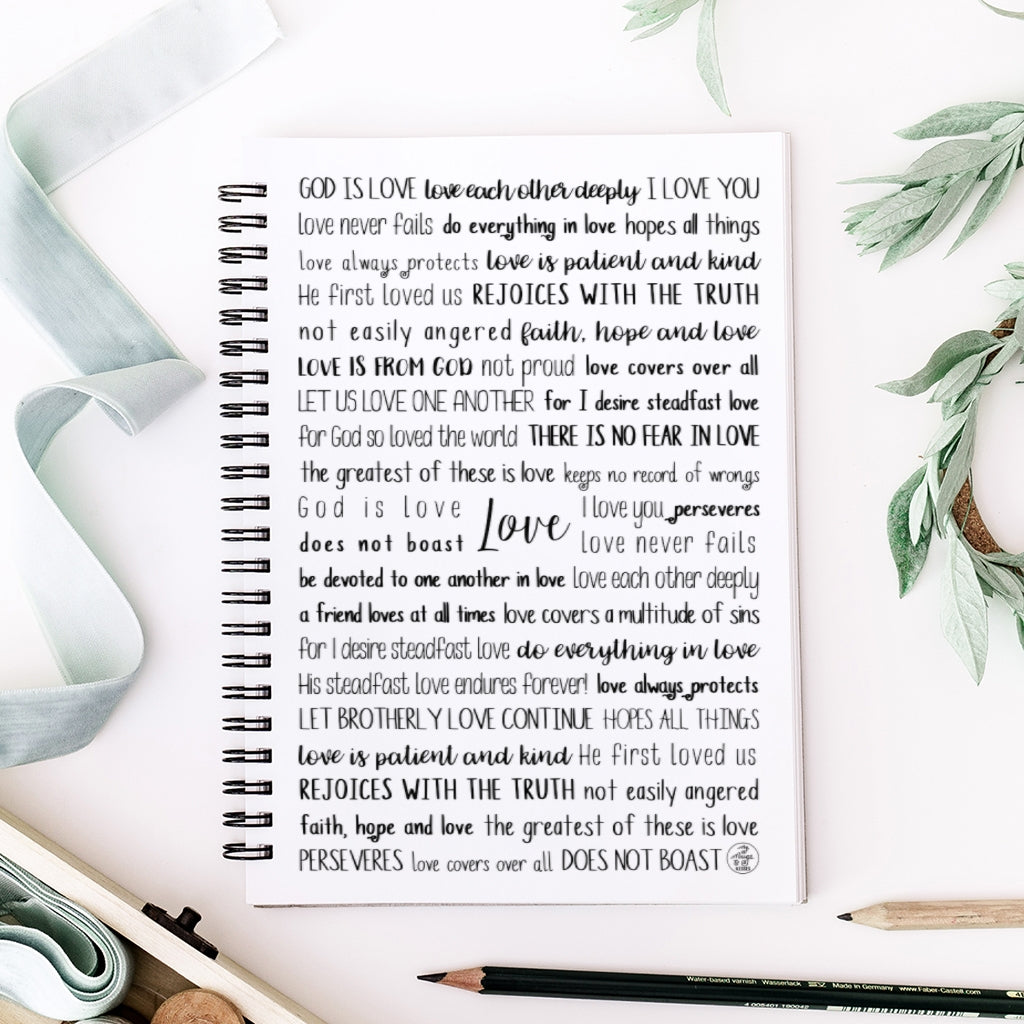 GOD IS LOVE love each other deeply I LOVE YOU
love never fails do everything in love hopes all things
love always protects love is patient and kind
He first loved us REJOICES WITH THE TRUTH
not easily angered faith, hope and love
LOVE IS FROM GOD not proud love covers over all
LET US LOVE ONE ANOTHER for I desire steadfast love
for God so loved the world THERE IS NO FEAR IN LOVE
the greatest of these is love keeps no record of wrongs
God is love
does not boast
Love
I love you perseveres
love never fails
be devoted to one another in love love each other deeply
a friend loves at all times love covers a multitude of sins
for I desire steadfast love do everything in love
His steadfast love endures forever! love always protects
LET BROTHERLY LOVE CONTINUE HOPES ALL THINGS
love is patient and kind He first loved us
REJOICES WITH THE TRUTH not easily angered
faith, hope and love the greatest of these is love
PERSEVERES love covers over all DOES NOT BOAST
Water-based varnish Wasserlack Made in Germany www.Faber-Castell.com
4 005401 190042